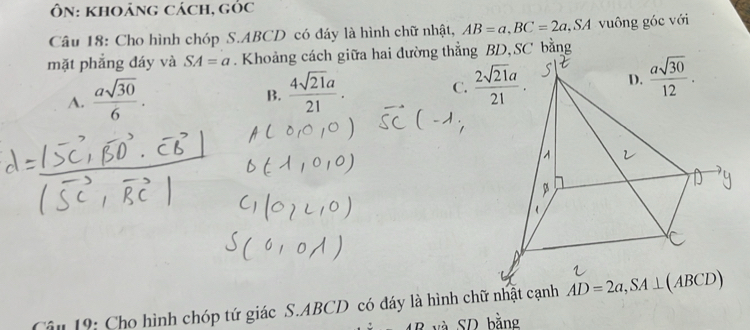 ÔN: KHOẢNG CÁCH, GÓC
Câu 18: Cho hình chóp S.ABCD có đáy là hình chữ nhật, AB = a, BC = 2a, SA vuông góc với
mặt phẳng đáy và SA = a. Khoảng cách giữa hai đường thẳng BD, SC bằng
A. a√30/6.
B. 4√21a/21.
C. 2√21a/21.
D. a√30/12.
d = |SC, BD . CB|
|SC, BC|
A(0,0,0)
SC(-1;
(1,0,0)
S(0,0,1)
S
z
1
2
D
y
C
2
Câu 19: Cho hình chóp tứ giác S.ABCD có đáy là hình chữ nhật cạnh AD = 2a, SA ⊥ (ABCD)
AB và SD bằng